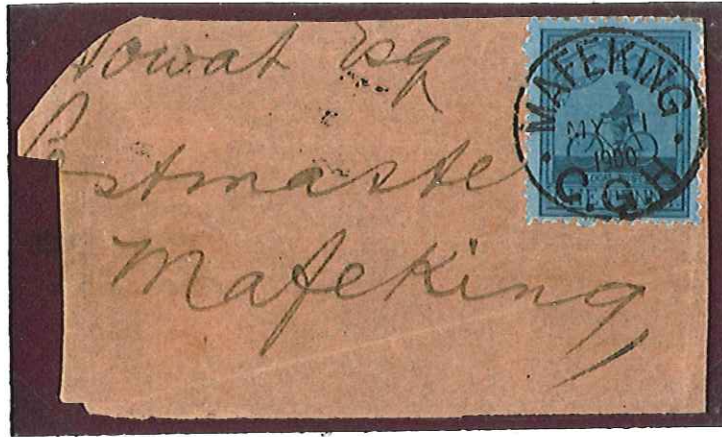 Howat Esq
Postmaste
Mafeking,
MAFEKING
MY 11
1900
C.G.H